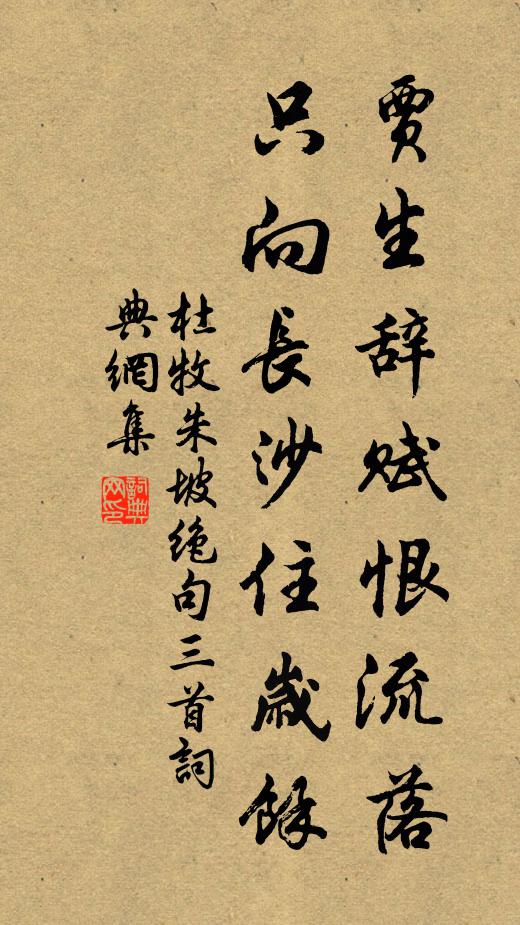 賈生辞賦恨流落
只向長沙住歲餘
杜牧朱坡绝句三首詞
典網集
詞典
网印